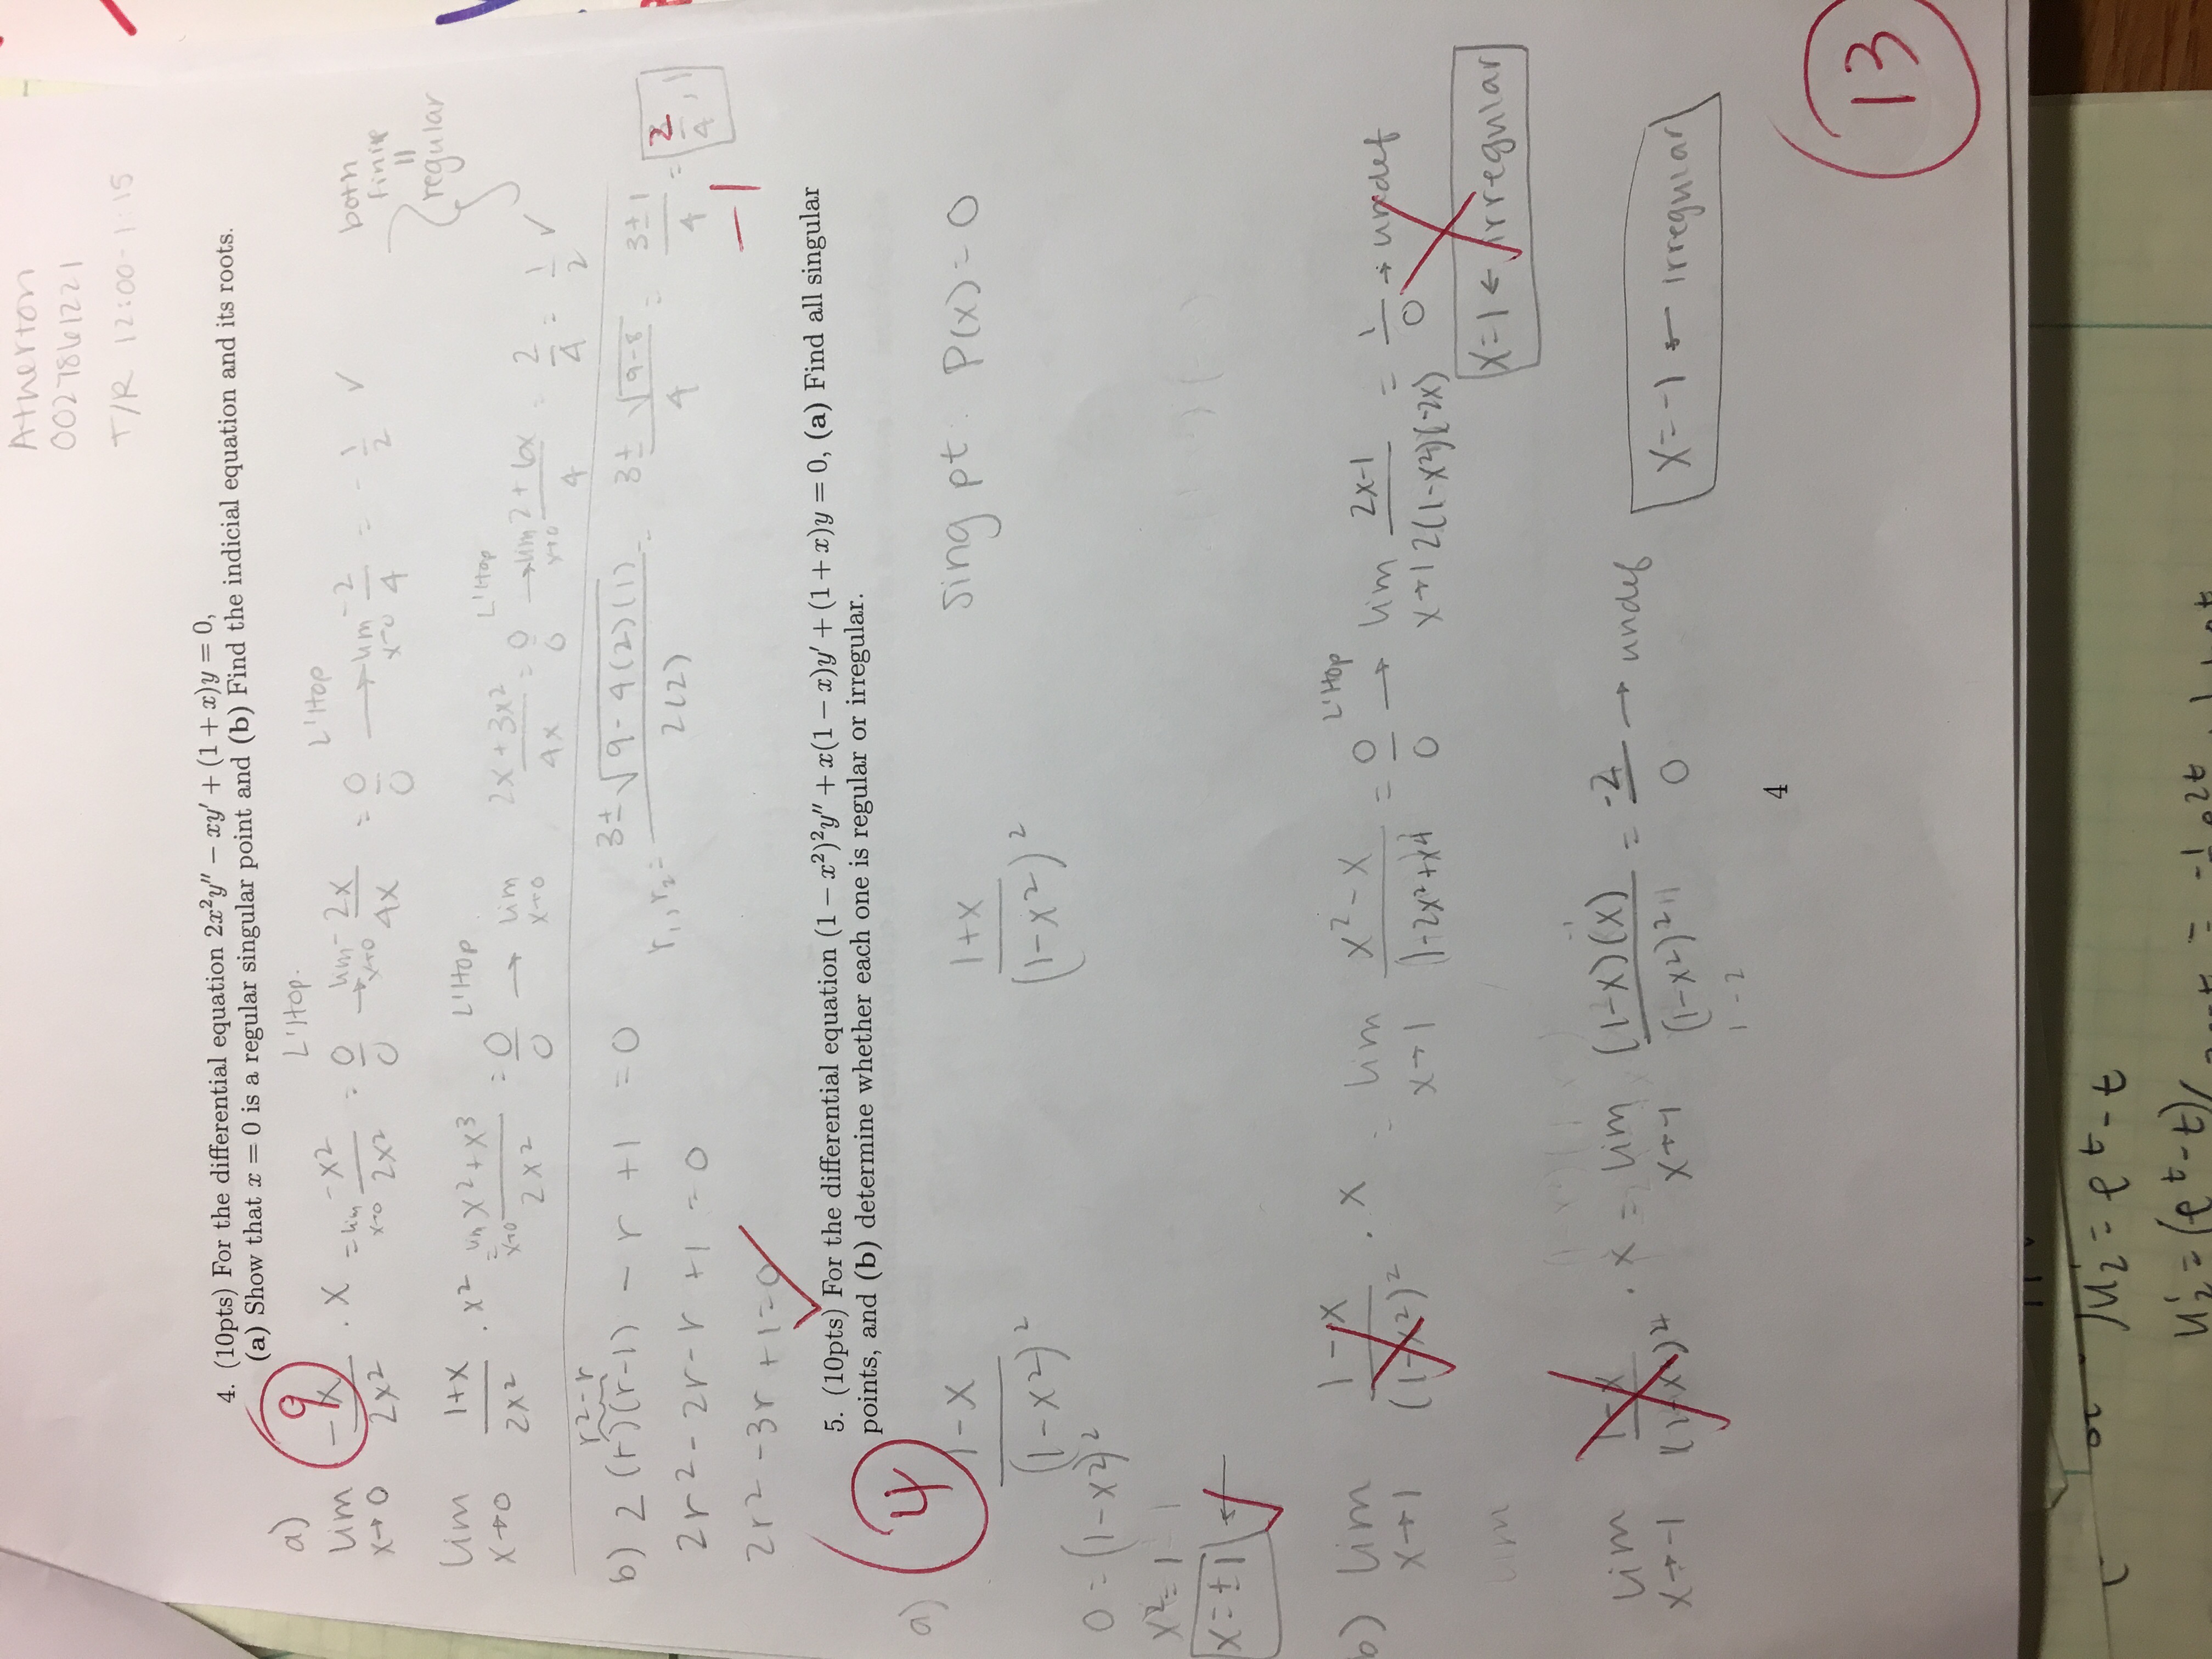 Atherton
0027861221
T/R 12:00-1:15
4. (10pts) For the differential equation 2x²y″ − xy′ + (1 + x)y = 0,
(a) Show that x = 0 is a regular singular point and (b) Find the indicial equation and its roots.
9
a)
L'Hop.
L'Hop
lim x→0 -x/2x² · x = lim x→0 -x²/2x² = 0/0 → lim x→0 -2x/4x = 0/0 → lim x→0 -2/4 = -1/2 ✓
both
finite
=
regular
L'Hop
L'Hop
lim x→0 1+x/2x² · x² = lim x→0 x²+x³/2x² = 0/0 → lim x→0 2x+3x²/4x = 0/0 → lim x→0 2+6x/4 = 2/4 = 1/2 ✓
r²-r
b) 2(r)(r-1) - r + 1 = 0
r₁,r₂ = 3±√9-4(2)(1)/2(2) = 3±√9-8/4 = 3±1/4 = 2/4, 1
-1
2r²-2r-r +1 = 0
2r²-3r +1=0
5. (10pts) For the differential equation (1 − x²)²y″ + x(1 − x)y′ + (1 + x)y = 0, (a) Find all singular
points, and (b) determine whether each one is regular or irregular.
4
a)
1-x/(1-x²)²
1+x/(1-x²)²
sing pt: P(x)=0
0=(1-x²)²
x²=1
x=±1 ←
L'Hop
b) lim x→1 1-x/(1-x²)² · x = lim x→1 x²-x/1-2x²+x⁴ = 0/0 → lim x→1 2x-1/2(1-x²)(-2x) = 1/0 → undef
x=1 ← irregular
lim
lim x→-1 1-x/(1-x²)² · x = lim x→-1 (1-x)(x)/(1-x²)² = -2/0 → undef
x=-1 ← irregular
1-2
4
13
or μ₂' = e^t - t
u₂' = (e^t-t)/